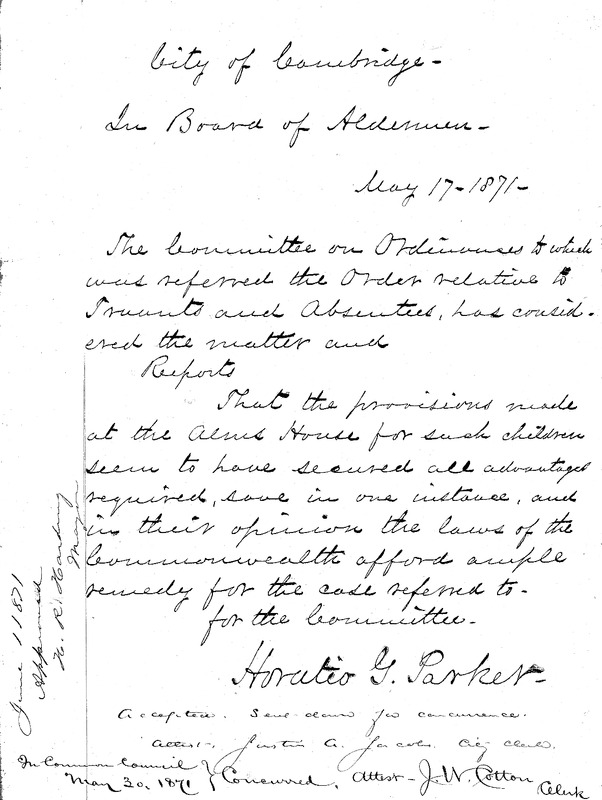 City of Cambridge-
In Board of Aldermen-
May 17-1871-
The Committee on Ordinances to which
was referred the Order relative to
Truants and Absentees, has consid-
ered the matter and
Reports
That the provisions made
at the Alms House for such children
seem to have secured all advantages
required, save in one instance, and
in their opinion the laws of the
Commonwealth afford ample
remedy for the case referred to-
for the Committee-
Horatio G. Parker-
Accepted. Sent down for concurrence.
Attest, Justin A. Jacobs. City Clerk.
In Common Council
May 30, 1871 } Concurred. Attest- J. W. Cotton Clerk
June 1 1871
Approved
H. R. Harding
Mayor